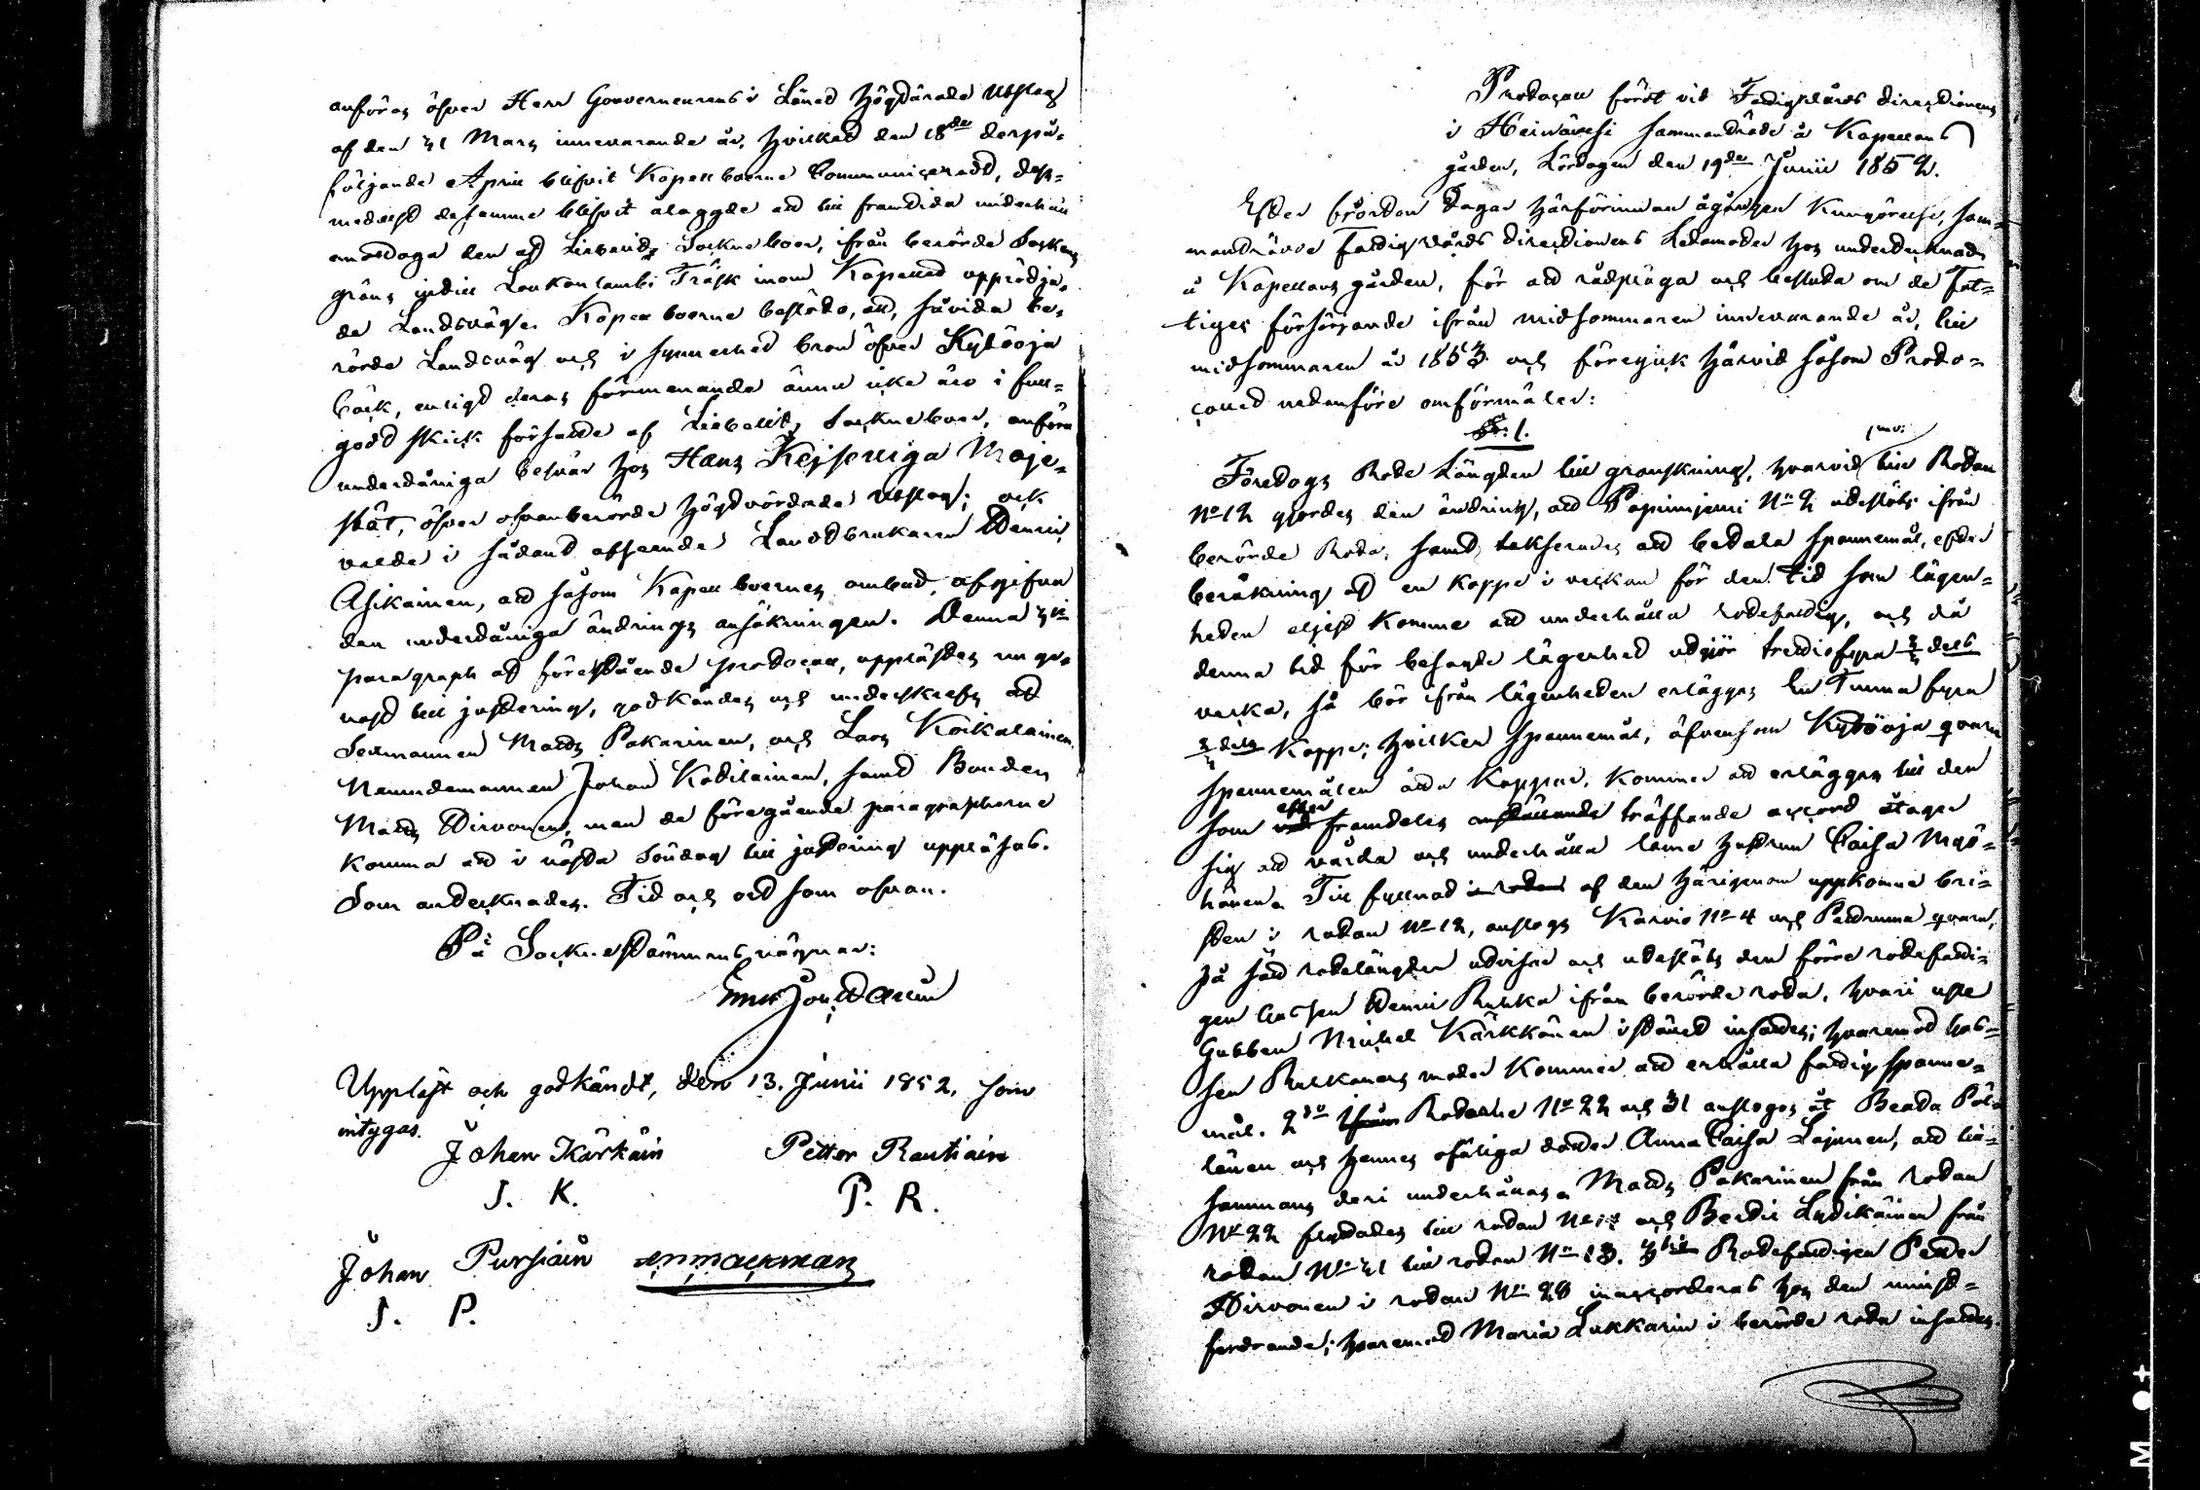 anföras öfver Herr Gouverneurens i Länet Högtärade Utslag
af den 31 Mars innevarande år, hvilket den 18de derpå-
följande April blifvit Kapellboerne Communiceradt, der-
medelst desamme blifvit ålaggde att till framtida underhåll
emottaga den af Libelits Sockneboer, ifrån berörde Sockens
gräns intill Laukonlambi Träsk inom Kapellet upprödja-
de Landsväg. Kapellboerne beslöto, att, såvida be-
rörde Landsväg och i synnerhet bron öfver Kytöoja
bäck, enligt deras förmenande ännu icke äro i full-
godt skick försatte af Libelits Sockneboer, anföra
underdåniga besvär hos Hans Kejserliga Maje-
stät, öfver ofvanberörde Högtvördade Utslag; och
valde i sådant afseende Landbrukaren Henric
Asikainen, att såsom Kapellboernes ombud, afgifva
den underdåniga ändrings ansökningen. Denna 3die
paragraph af förestående protocoll, upplästes nu ge-
nast till justering, godkändes och underskrefs af
Sexmannen Matts Pakarinen, och Lars Koikalainen,
Nämndemannen Johan Kotilainen, samt Bonden
Matts Hirvonen, men de föregående paragrapherne
komma att i nästa Söndag till justering uppläsas.
Som antecknades. Tid och ort som ofvan.
På Sockenstämmans vägnar:
Uppläst och godkändt, den 13. Junii 1852, som
intygas.
Johan Kärkäin Petter Rautiain
J. K. P. R.
Johan Pursiain
J. P.
Protocoll fördt vid Fattigvårds directionens
i Heinävesi sammanträde å Kapellans
gården, Lördagen den 19de Junii 1852.
Efter fjorton dagar härförinnan ågången Kungörelse, sam-
manträdde Fattigvårds directionens Ledamöter hos undertecknad
å Kapellans gården, för att rådpläga och besluta om de Fat-
tiges försörjande ifrån midsommaren innevarande år, till
midsommaren år 1853 och föregick härvid såsom Proto-
collet nedanföre omförmäler:
§. 1.
Företogs Rote Längden till granskning, hvarvid 1mo: till Rotan
No 12 gjordes den ändring, att Papinniemi No 2 uteslöts ifrån
berörde Rota, samt taxerades att betala spannemål, efter
beräkning af en kappe i veckan för den tid som lägen-
heten eljest komme att underhålla rotefattig, och då
denna tid för besagde lägenhet utgör trettiofyra 2/3 dels
vecka, så bör ifrån lägenheten erläggas En Tunna fyra
2/3 dels Kappe; hvilken spannemål, äfvensom Kytöoja qvarn
spannemålen åtta Kappar, kommer att erläggas till den
som efter framdeles träffande accord åtager
sig att vårda och underhålla lama hustrun Caisa Myö-
hänen. Till fyllnad i rotan af den härigenom uppkomne bri-
sten i rotan No 12, anslogs Karvio No 4 och Pettumma qvarn,
på sätt rotelängden utvisar och uteslöts den förre rotefatti-
gen Henric Rukka ifrån berörde rota, hvari uste
Gubben Michel Kärkkänen i stället insattes; hvaremot
sen moder kommer att erhålla fattig spanne-
mål. 2do Rotarne No 22 och 31 anslogos åt Beata Pöl-
länen och hennes ofäliga dotter Anna Caisa Lajunen, att till-
sammans deri underhållas. Matts Pakarinen från rotan
No 22 flyttades till rotan No 17 och Bertil Lytikäinen från
rotan No 31 till rotan No 13. 3tio Rotefattigen Petter
Hirvonen i rotan No 28 inaccorderas hos den minst-
fordrande; hvaremot Maria Lukkarin i berörde rota insattes.